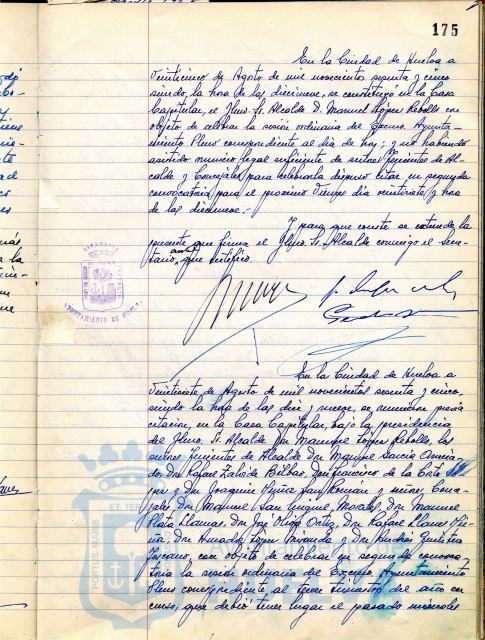 175
En la Ciudad de Huelva a
veinticinco de Agosto de mil novecientos sesenta y cinco
siendo la hora de las diecinueve, se constituyó en la Casa
Capitular, el Ilmo. Sr. Alcalde D. Manuel López Rebollo con
objeto de celebrar la sesión ordinaria del Excmo. Ayunta-
miento Pleno correspondiente al día de hoy; y no habiendo
asistido número legal suficiente de señores Tenientes de Al-
calde y Concejales para celebrarla dispuso citar en segunda
convocatoria para el próximo Viernes día veintisiete y hora
de las diecinueve.-
Y para que conste se extiende la
presente que firma el Ilmo. Sr. Alcalde conmigo el Secre-
tario, que certifico.
AYUNTAMIENTO DE HUELVA
En la Ciudad de Huelva a
veintisiete de Agosto de mil novecientos sesenta y cinco,
siendo la hora de las diez y nueve, se reunieron previa
citación, en la Casa Capitular, bajo la presidencia
del Ilmo. Sr. Alcalde Don Manuel López Rebollo, los
señores Tenientes de Alcalde Don Manuel García
Don Rafael Don Francisco de la Corte
Don Joaquín San Román y señores Conce-
jales Don Manuel San Miguel Morales, Don Manuel
Plata Llamas, Don José Oliva Ortiz, Don Rafael Llanes
Don Amador López Miranda y Don Andrés
Toscano, con objeto de celebrar en segunda convoca-
toria la sesión ordinaria del Excmo. Ayuntamiento
Pleno correspondiente al tercer trimestre del año en
curso, que debió tener lugar el pasado miércoles
PORTUS MARIS ET TER